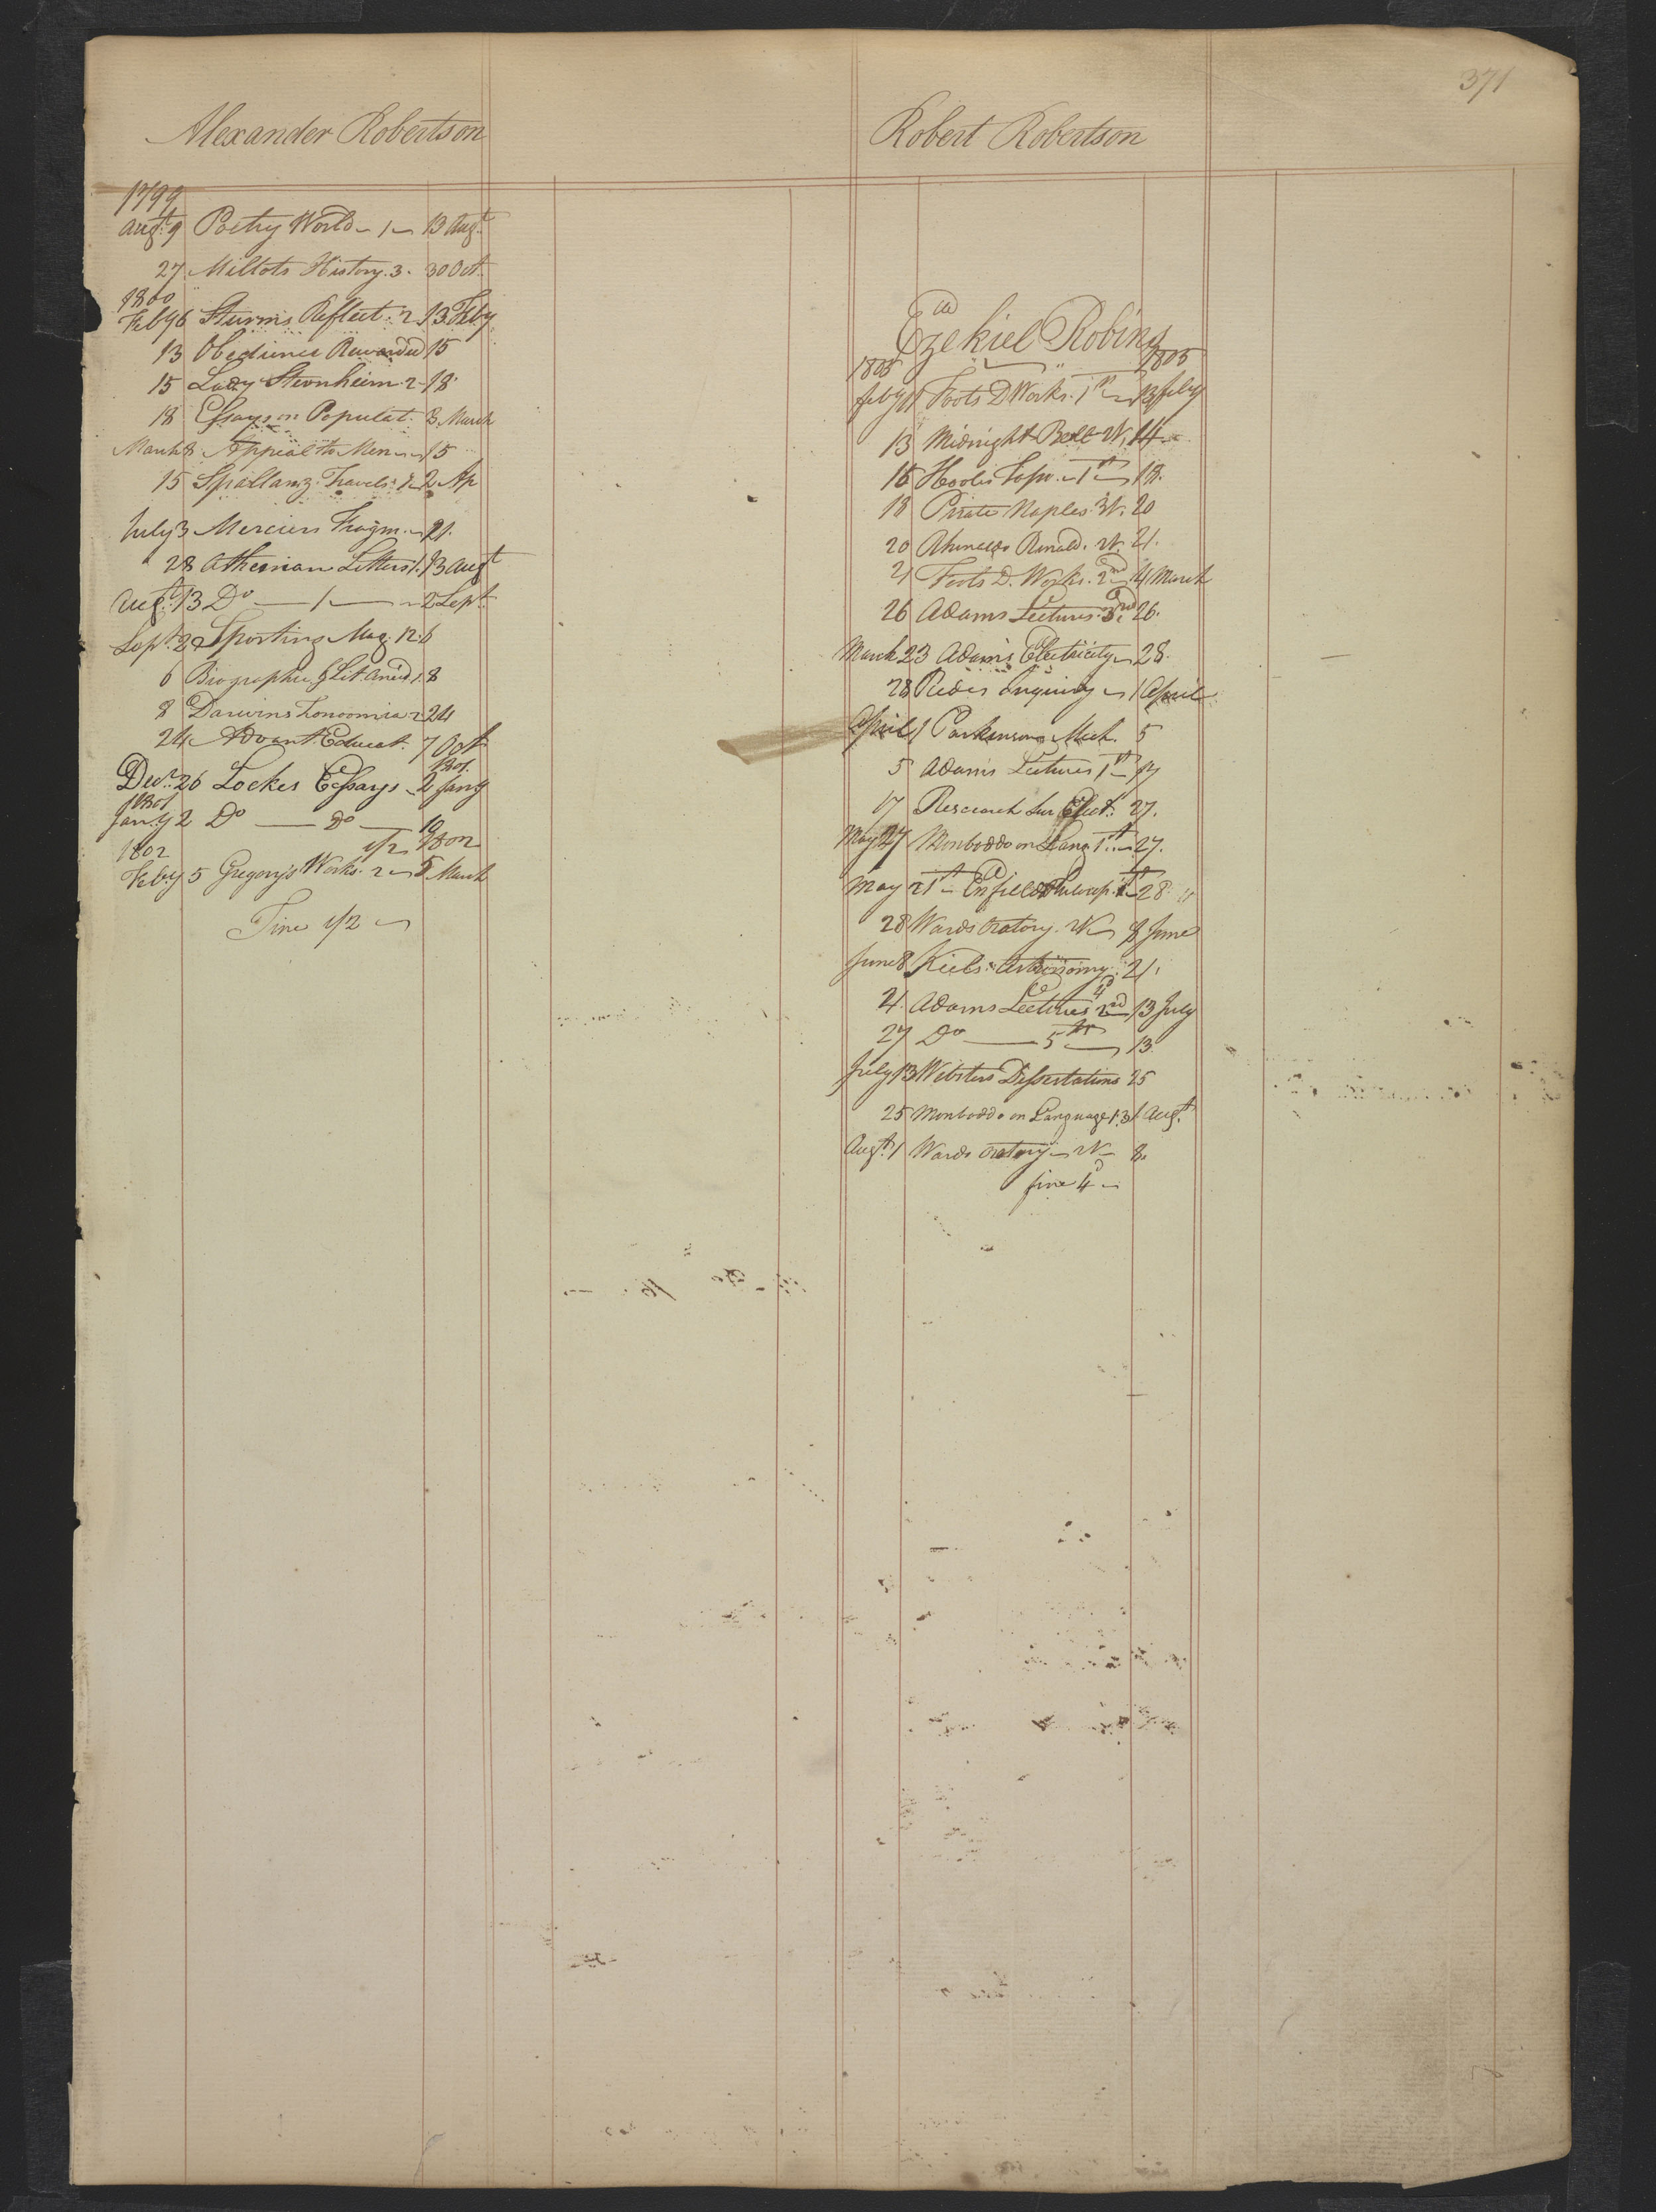 371
Alexander Robertson
1799
Augt. 9 Poetry World - 1 - 13 Augt.
27 Millots History. 3. 30 Oct.
1800
Feby 6 Sturms Reflect. 2 13 Feby
13 Obedience Rewarded 15
15 Lady Sternheim. 2 - 18
18 Essays on Populat. 3 March
March 3 Appeal to Men 15
15 Spallanz. Travels. 2 Ap
July 3 Merciers Fragm. 21.
28 Athenian Letters 1. 13 Augt
Augt. 13 Do — 1 — 2 Sept.
Sept. 2 Sporting Mag. 12. 6
6 Biographia & Lit Anecd. 1. 8
8 Darwins Zonoomia 2 24
24 Advant Educat. 7 Oct
1801
Decr. 26 Lockes Essays 2 Jany
1801
Jany 2 Do — Do — 19
1802 1/2 1802
Feby 5 Gregory's Works. 2 5 March
Fine 1/2
Robert Robertson
Ezekiel Robins
1805 1805
feby 11 Foots D Works. 1st 13 feby
13 Midnight Bell 2V. 14
16 Hools Tasso. 1st 18.
18 Pirate Naples. 3V. 20
20 Rinald. 2V. 21.
21 Foots D. Works. 2nd 4 March
26 Adams Lectures. 3rd 26.
March 23 Adams Electricity 28.
28 Reids Inquiry 1 April
April 1 Parkinsons Mech. 5
5 Adams Lectures 1st 17
17 Research Sur Elect. 27.
May 27 Monboddo on Lang 1st. 27.
May 21st Enfields Philosop. 1st 28
28 Wards Oratory. 2V 8 June
June 8 Kiels Astronomy 21.
21. Adams Lectures 2nd 13 July
27 Do — 5th 13
July 13 Websters Dissertations 25
25 Monboddo on Language 1. 3 1 Augt.
Augt. 1 Wards Oratory 2V 8.
fine 4d